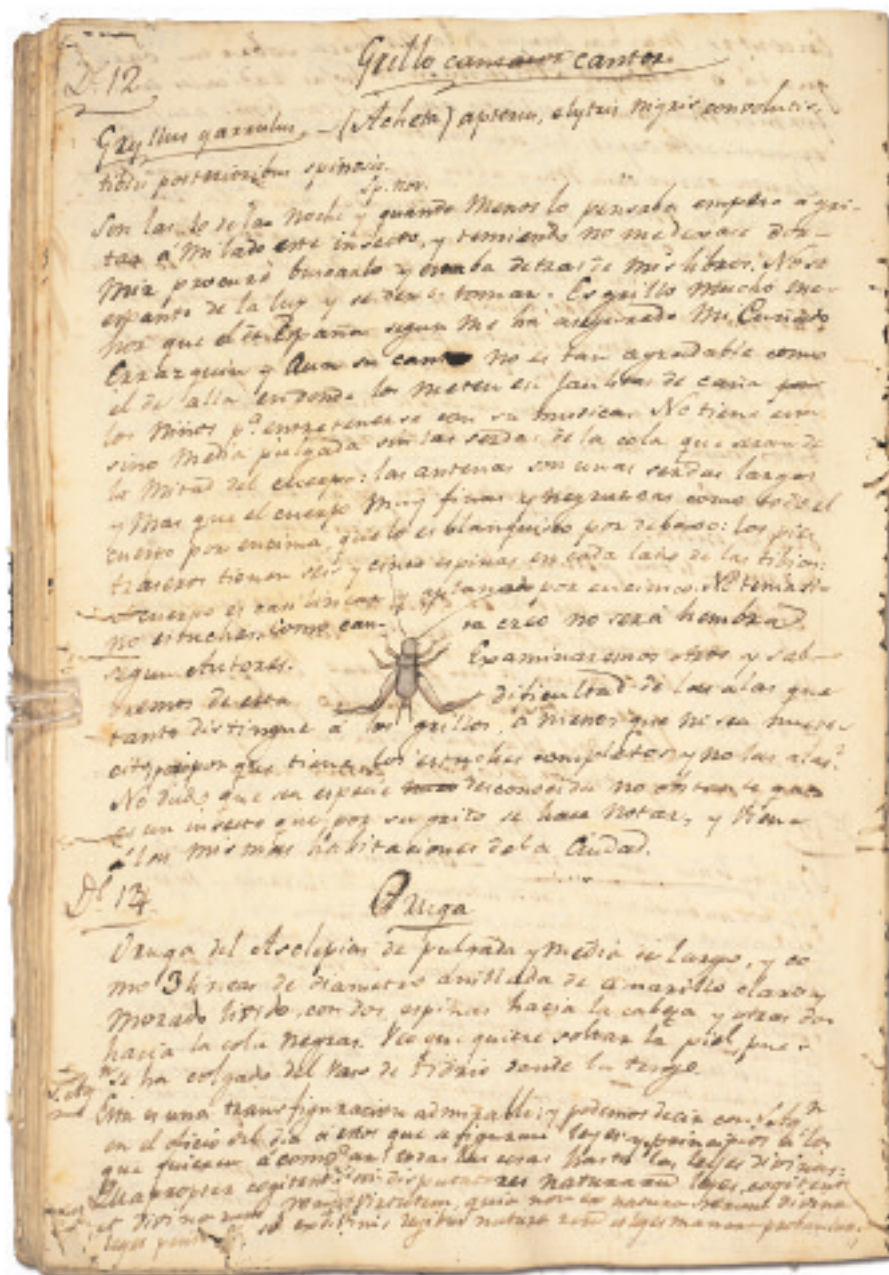 Dl. 12
Grillo cantor.
Gryllus garrulus. - (Acheta) apterus, elytris nigris convolutis,
tibiis posterioribus spinosis.
Sp. nov.
Son las 10 de la noche y quando menos lo pensaba empezo a gri-
tar á mi lado este insecto, y temiendo no me dexase dor-
mir procuré buscarlo y estaba detras de mis libros. No se
espantó de la luz y se dexó tomar. Es grillo mucho me-
nor que el de España segun me ha asegurado mi Cuñado
y aun su canto no es tan agradable como
el de alla en donde los meten en jaulitas de caña
los niños pa. entretenerse con su musica. No tiene
sino media pulgada sin las sedas de la cola que seran de
la mitad del cuerpo: las antenas son unas sedas largas
y mas que el cuerpo muy finas y negruscas como todo el
cuerpo por encima, que lo es blanquisco por debaxo: los pies
traseros tienen seis y cinco espinas en cada lado de las tibias:
cuerpo es casi linear y aplanado por encima. No
no estuches, como creo no será hembra
segun Autores. Examinaremos otros y sab-
remos de esta dificultad de las alas que
tanto distingue á los grillos, á menos que ni sea
porque tiene los estuches completos y no las alas.
No dudo que sea especie desconocida no obstante que
es un insecto que por su grito se hace notar, y viene
á las mismas habitaciones de la Ciudad.
Dl. 14
Oruga
Oruga del Asclepias de pulgada y media de largo, y co
mo 3 lineas de diametro anillada de amarillo claro y
morado livido, con dos espinas hacia la cabeza y otras dos
hacia la cola negras. Veo que quiere soltar la piel, pues
se ha colgado del vaso de vidrio donde la tengo.
Esta es una transfiguracion admirable: y podemos decir con
en el oficio del dia á estos que se figuran leyes y principios á los
que quieren todas las cosas hasta las leyes divinas:
Quapropter naturarum leges,
quia non ex natura
naturae